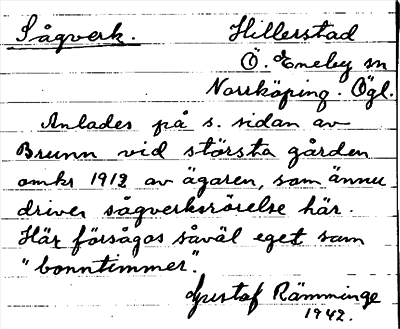 Sågverk. Hillerstad
Ö. Eneby sn
Norrköping. Ögl.
Anlades på s. sidan av
Brunn vid största gården
omkr 1912 av ägaren, som ännu
driver sågverksrörelse här.
Här försågas såväl eget som
"bonntimmer".
Gustaf Rämminge
1942.